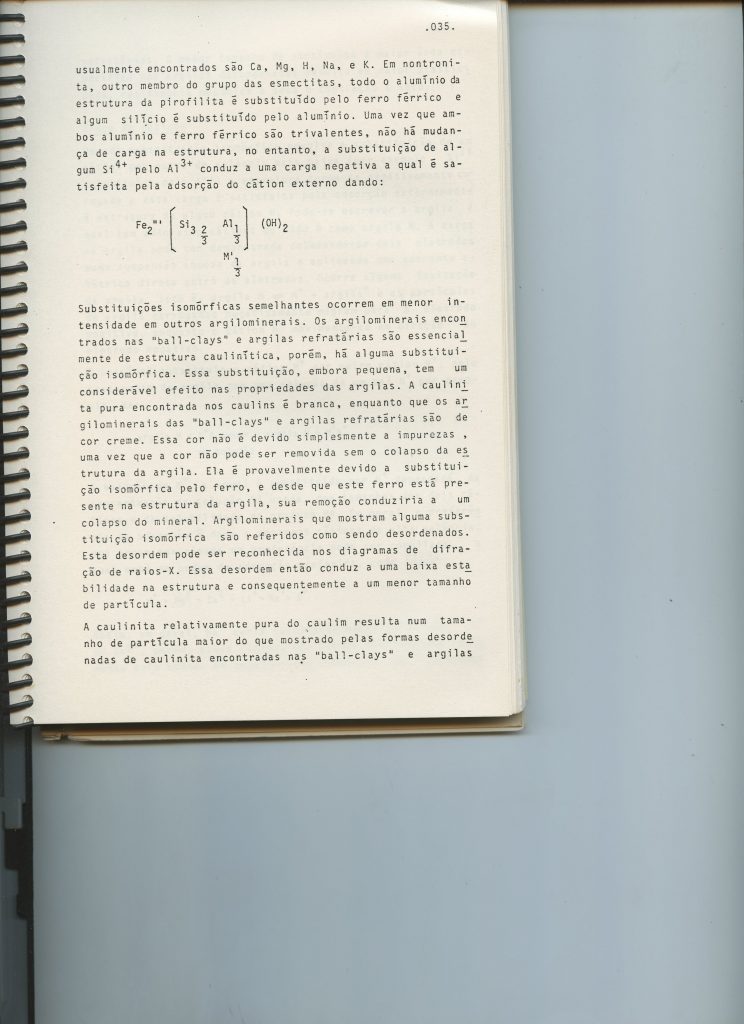 .035.
usualmente encontrados são Ca, Mg, H, Na, e K. Em nontroni-
ta, outro membro do grupo das esmectitas, todo o alumínio da
estrutura da pirofilita é substituído pelo ferro férrico e
algum silício é substituído pelo alumínio. Uma vez que am-
bos alumínio e ferro férrico são trivalentes, não há mudan-
ça de carga na estrutura, no entanto, a substituição de al-
gum Si4+ pelo Al3+ conduz a uma carga negativa a qual é sa-
tisfeita pela adsorção do cátion externo dando:
Fe2"' [ Si3 2/3 Al1/3 ] (OH)2
M'1/3
Substituições isomórficas semelhantes ocorrem em menor in-
tensidade em outros argilominerais. Os argilominerais encon
trados nas "ball-clays" e argilas refratárias são essencial
mente de estrutura caulinítica, porém, há alguma substitui-
ção isomórfica. Essa substituição, embora pequena, tem um
considerável efeito nas propriedades das argilas. A caulini
ta pura encontrada nos caulins é branca, enquanto que os ar
gilominerais das "ball-clays" e argilas refratárias são de
cor creme. Essa cor não é devido simplesmente a impurezas ,
uma vez que a cor não pode ser removida sem o colapso da es
trutura da argila. Ela é provavelmente devido a substitui-
ção isomórfica pelo ferro, e desde que este ferro está pre-
sente na estrutura da argila, sua remoção conduziria a um
colapso do mineral. Argilominerais que mostram alguma subs-
tituição isomórfica são referidos como sendo desordenados.
Esta desordem pode ser reconhecida nos diagramas de difra-
ção de raios-X. Essa desordem então conduz a uma baixa esta
bilidade na estrutura e consequentemente a um menor tamanho
de partícula.
A caulinita relativamente pura do caulim resulta num tama-
nho de partícula maior do que mostrado pelas formas desorde
nadas de caulinita encontradas nas "ball-clays" e argilas